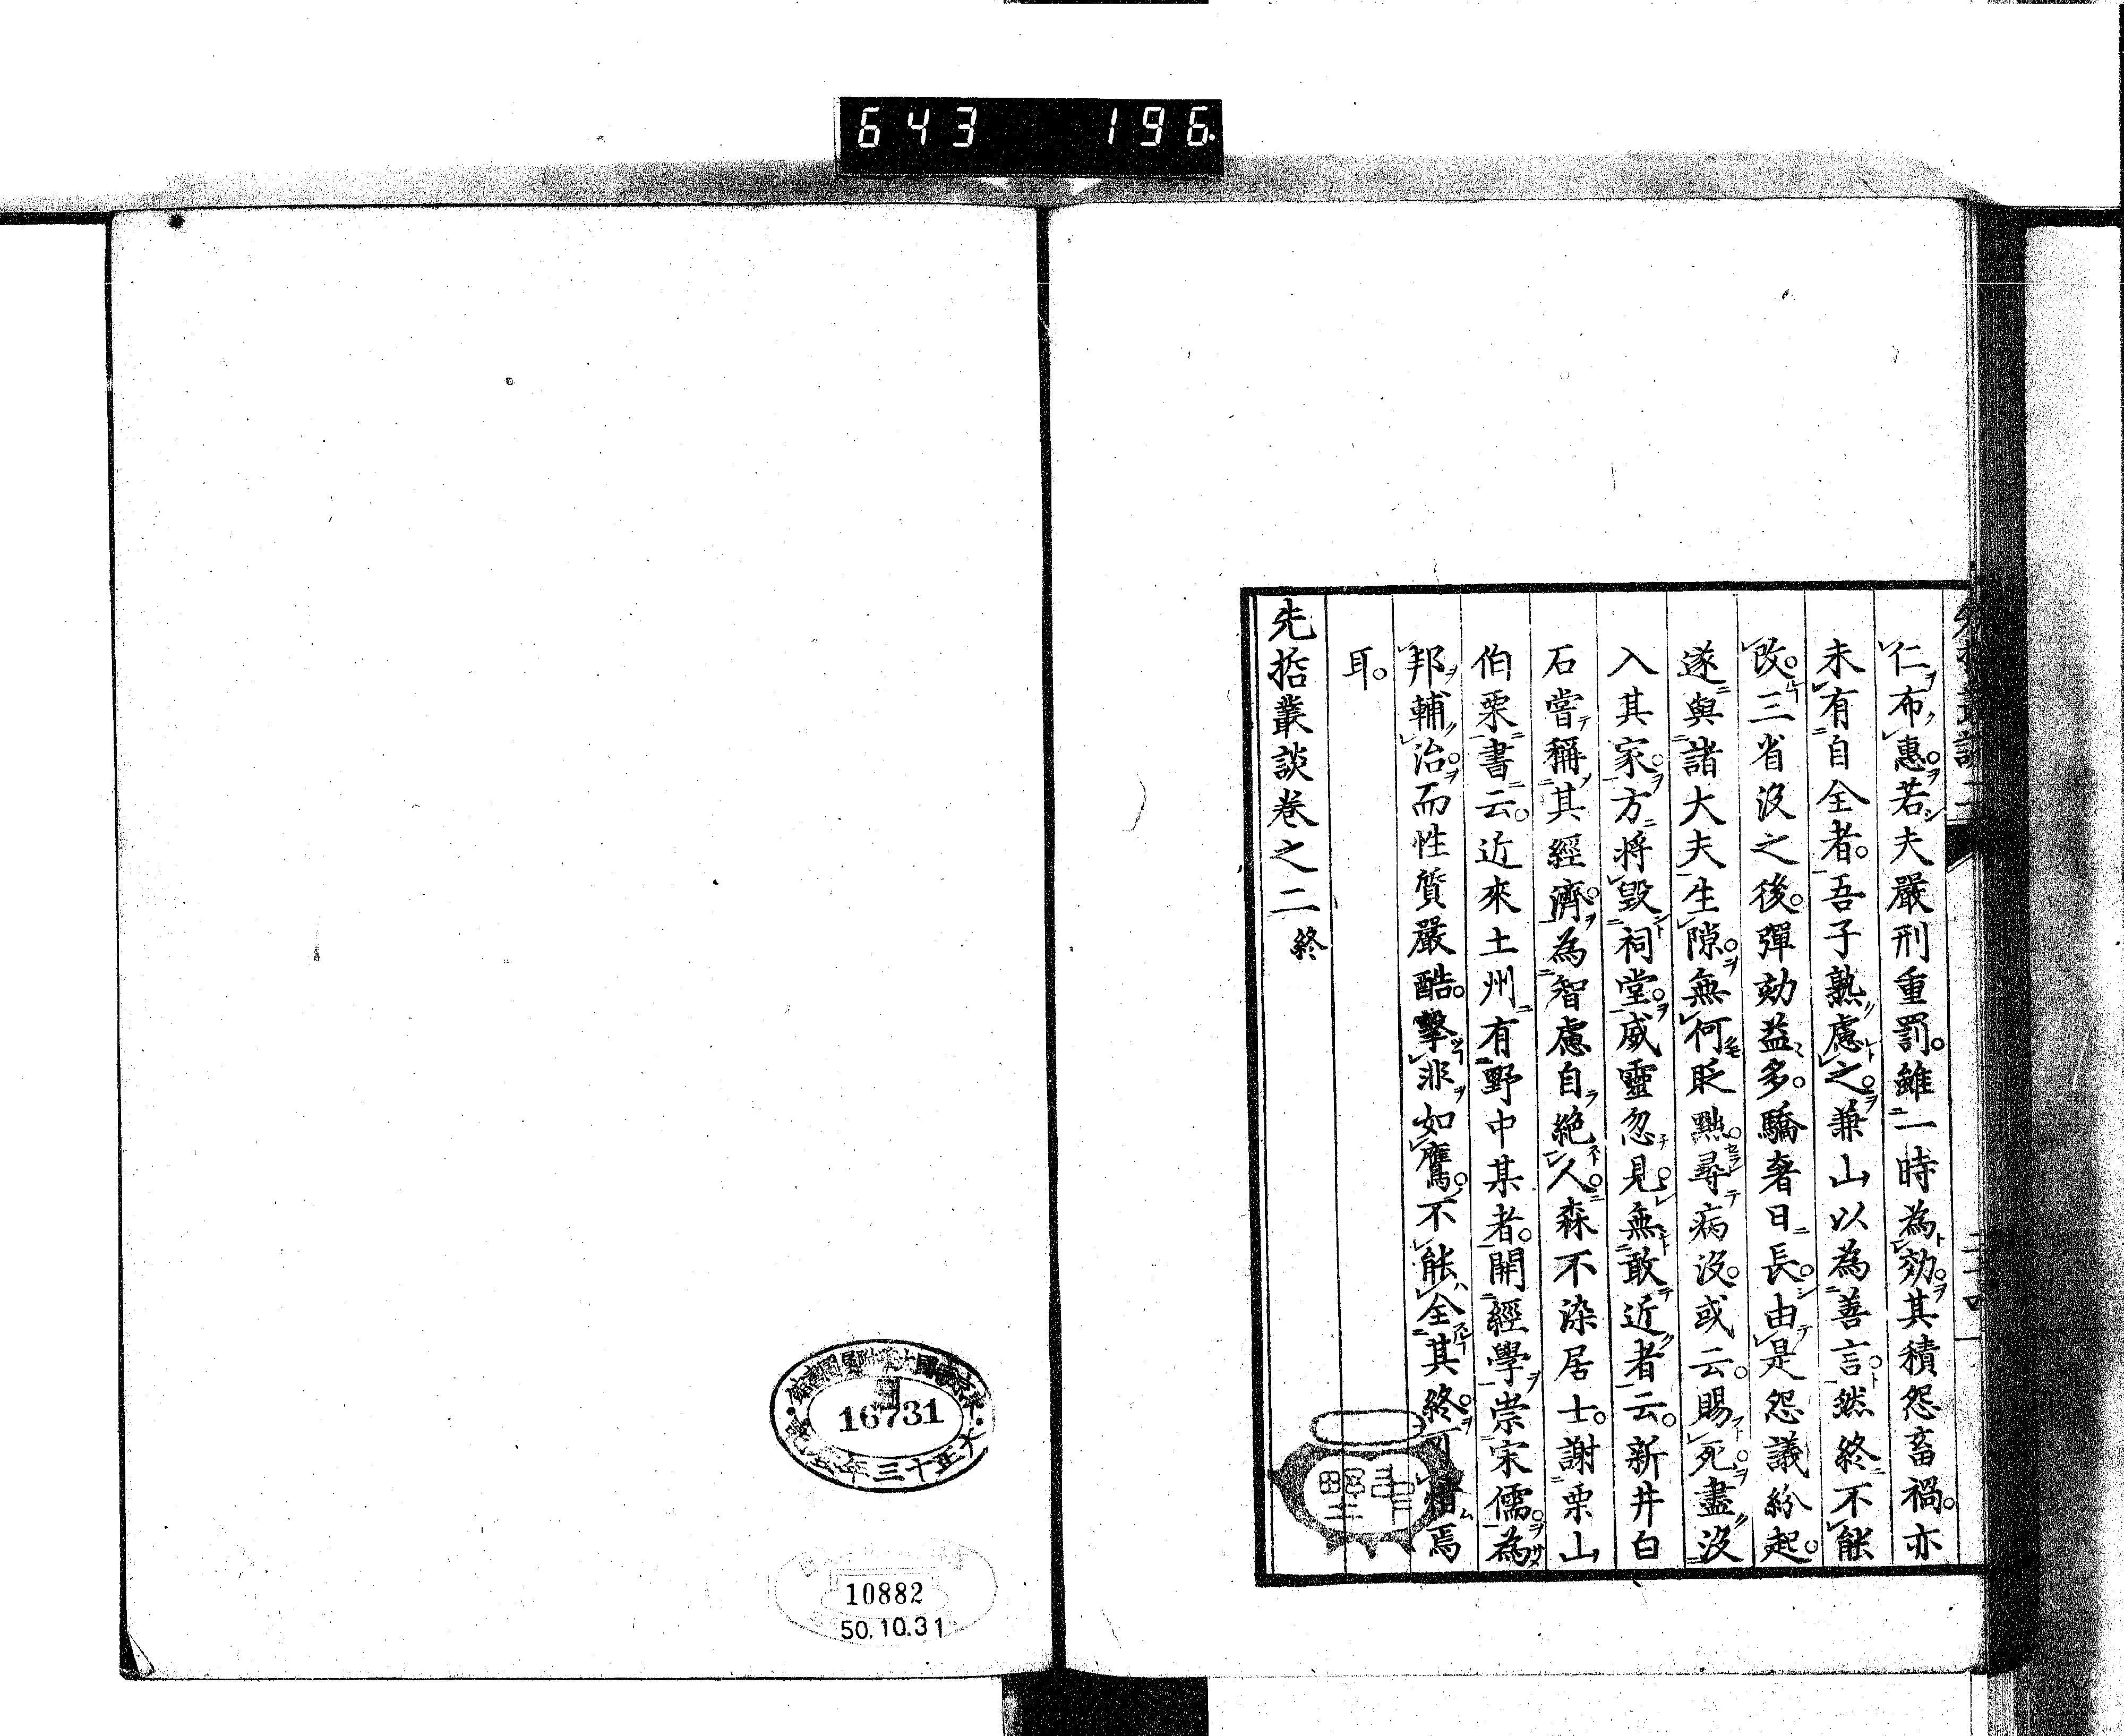 643 196
仁布惠若夫嚴刑重罰。雖一時為効。其積怨畜禍。亦
未有自全者。吾子熟慮之。兼山以為善言。然終不能
改。三省沒之後。彈劾益多。驕奢日長。由是怨議紛起。
遂與諸大夫生隙。無何貶黜。尋病沒。或云。賜死。盡沒
入其家。方將毀祠堂。威靈忽見。無敢近者云。新井白
石嘗稱其經濟。為智慮自絕人。森不染居士。謝栗山
伯栗書云。近來土州有野中某者。開經學崇宋儒。為
邦輔治。而性質嚴酷。擊非如鷹。不能全其終。可惜焉
耳。
先哲叢談卷之二終
16731
10882
50.10.31